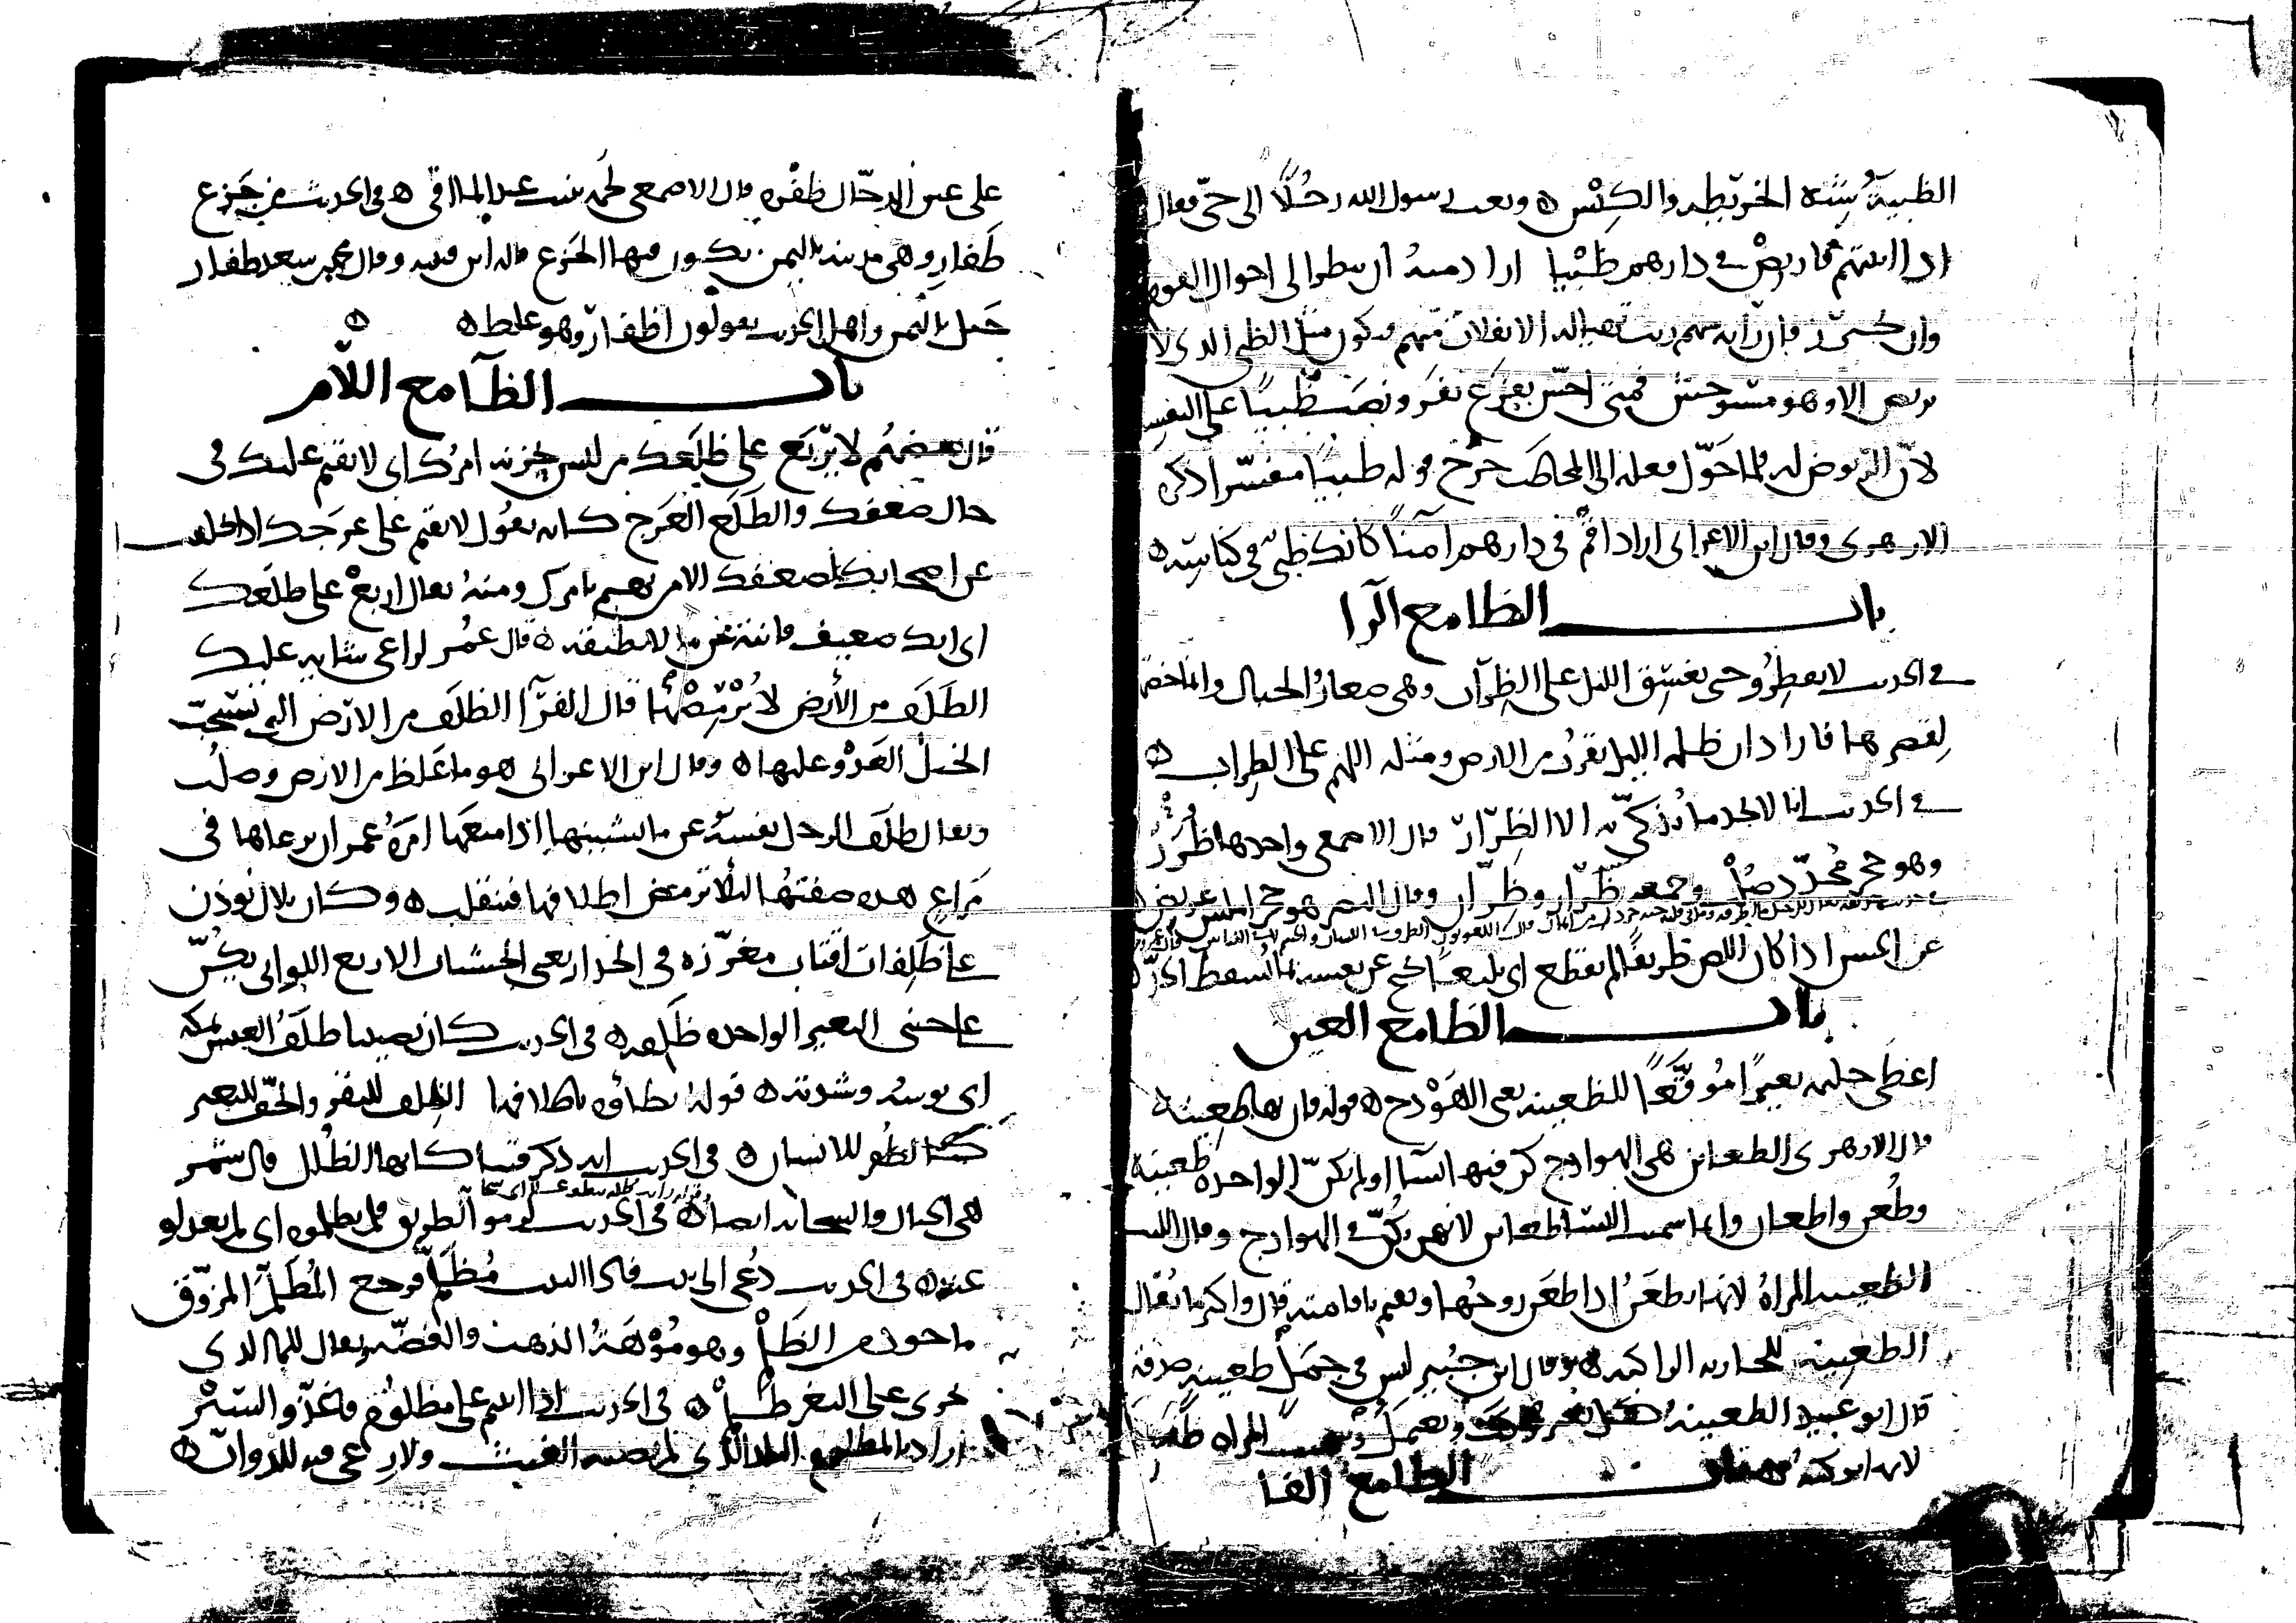 الظبية شبه الخريطة والكيس ه وبعث رسول الله رجلا الى حي فقال
اذا اتيتهم فاربض في دارهم ظبيا اراد منه ان ينظر الى احوال القوم
وان رابه منهم ريب تهيا له الانفلات منهم فيكون مثل الظبي الذي لا
يربض الا وهو مستوحش فمتى احس بفزع نفر ونصب ظبيا على التفسير
لان الربوض له فلما حول فعله الى المخاطب خرج قوله ظبيا مفسرا ذكره
الازهري وقال ابن الاعرابي اراد اقم في دارهم آمنا كانك ظبي في كناسه ه
باب الظا مع الرا
في الحديث لا يفطروا حتى يغسق الليل على الظراب وهي صغار الجبال وانما خص
لقصرها فاراد ان ظلمة الليل تقرب من الارض ومثله اللهم على الظراب ه
في الحديث انا لا نجد ما نذكي به الا الظرار قال الاصمعي واحدها ظرر
وهو حجر محدد صلب وجمعه ظرار وظران وقال النضر هو حجر املس عريض ه
عن الحسن اذا كان اللص ظريفا لم يقطع اي بليغا احتج عن نفسه بما يسقط الحد ه
باب الظا مع العين
اعطى حليمة بعيرا موقعا للظعينة يعني الهودج ه قوله فان بها ظعينة
قال الازهري الظعاين هي الهوادج كن فيها النسا او لم يكن الواحدة ظعينة
وظعن واظعان وانما سميت النسا ظعاين لانهن يكن في الهوادج وقال الليث
الظعينة المراة لانها تظعن اذا ظعن زوجها وتقيم باقامته قال واكثر ما يقال
الظعينة للجارية الراكبة ه وقال ابن جبير ليس في جمل ظعينة صدقة
قال ابو عبيد الظعينة كل بعير يركب ويعتمل وسميت المراة ظعينة
لانها تركبه باب الظا مع الفا
على عين الدجال ظفرة قال الاصمعي لحمة تنبت عند الماقي ه وفي الحديث من جزع
ظفار وهي مدينة باليمن يكون فيها الجزع قاله ابن قتيبة وقال محمد بن سعد ظفار
جبل باليمن واهل الحديث يقولون اظفار وهو غلط ه
باب الظا مع اللام
قال بعضهم لا يربع على ظلعك من ليس يحزنه امرك اي لا يقيم عليك في
حال ضعفك والظلع العرج كانه يقول لا يقيم على عرجك اذا تخلفت
عن اصحابك لضعفك الا من يهتم بامرك ومنه يقال اربع على ظلعك
اي انك ضعيف فانته عن ما لا تطيقه ه قال عمر لراعي شاية عليك
الظلف من الارض لا ترمضها قال الفرا الظلف من الارض التي تستحب
الخيل العدو عليها ه وقال ابن الاعرابي هو ما غلظ من الارض وصلب
ويقال ظلف الرجل نفسه عن ما يشينها اذا منعها امره عمر ان يرعاها في
مراع هذه صفتها لئلا ترمض اظلافها فتنقلب ه وكان بلال يوذن
على ظلفات اقتاب مغرزة في الجدار يعني الخشبات الاربع اللواتي يكن
على جنبي البعير الواحدة ظلفة ه في الحديث كان يصيبنا ظلف العيش بمكة
اي بوسه وشدته ه قوله تطاؤه باظلافها الظلف للبقر والخف للبعير
كذا الظفر للانسان ه في الحديث انه ذكر فتنا كانها الظلل قال شمر
هي الجبال والسحابه ايضا ه في الحديث لزموا الطريق فلم يظلموه اي لم يعدلوا
عنه ه في الحديث دعي الى بيت فاذا البيت مظلم فرجع المظلم المزوق
ماخوذ من الظلم وهو موهة الذهب والفضة يقال للما الذي
يجري على الثغر ظلم ه في الحديث اذا اتيتم على مظلوم فاغذوا السير
اراد بالمظلوم البلد الذي لم يصبه الغيث ولا رعي فيه للدواب ه